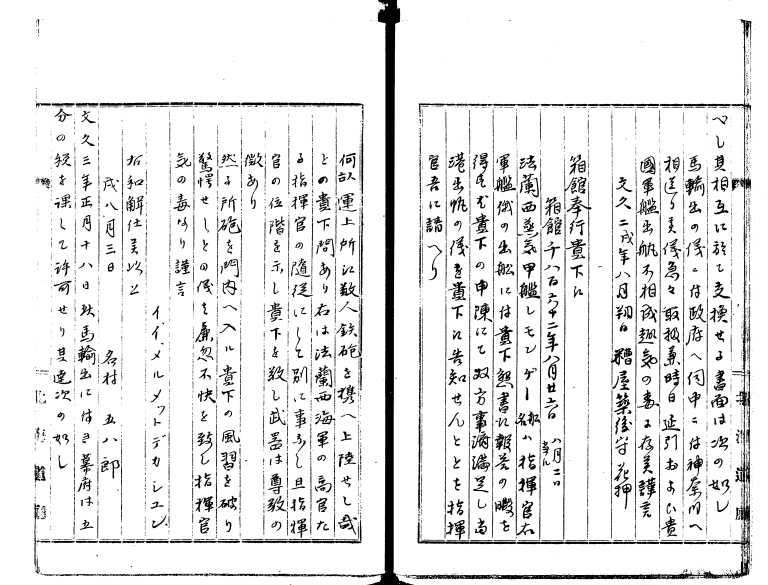 べし其相互に於て交換せる書面は次の如し
馬輸出の儀には政府へ伺申には神奈川へ
相送り其儀急々取扱兼時日延引および貴
國軍艦出帆不相成趣気の毒に存其謹言
文久二戌年八月朔日 糟屋筑後守花押
箱館奉行貴下に
箱館千八百六十二年八月廿六日 八月二日
法蘭西蒸気甲艦レモンゲー船指揮官右
軍艦儀の出船には貴下懇書に報答の暇を
得ず尤も貴下の申陳にて双方事済満足し当
港出帆の儀を貴下に告知せんことを指揮
官吾に請へり
何故運上所に数人鉄砲を携へ上陸せし哉
との貴下問あり右は法蘭西海軍の高官た
る指揮官の隨従にして別に事なし且指揮
官の位階を示し貴下を敬し武器は尊敬の
徴あり
然る所砲を門内へ入ル貴下の風習を破り
驚愕せしとの儀を廉忽不快を致し指揮官
気の毒なり謹言
イイ、メルメットデカシュン
右和解仕其以上
戌八月三日 名村五八郎
文久三年正月十八日牧馬輸出に付き幕府は五
分の税を課して許可せり其達次の如し
北海道廳